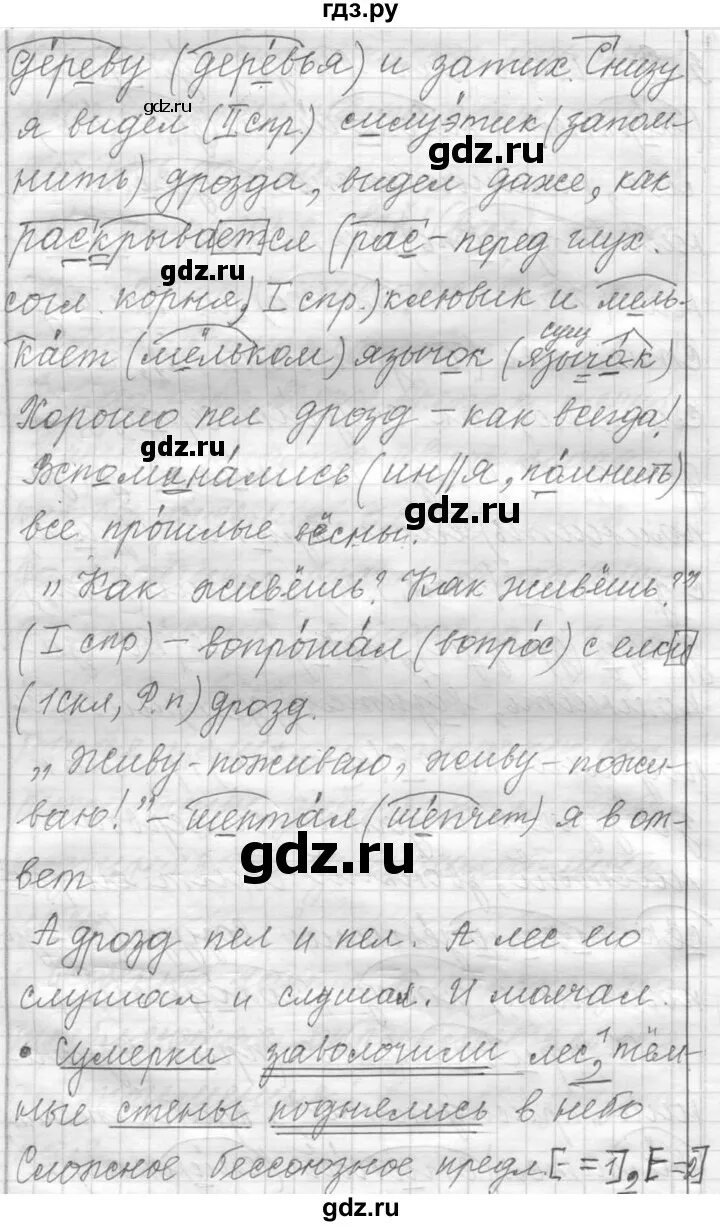 гдз.ру
дереву (деревья) и затих. Снизу
я видел (II спр.) силуэтик (запом-
нить) дрозда, видел даже, как
раскрывается (рас- перед глух.
согл. корня, I спр.) клювик и мель-
кает (мельком) язычок (язычок) сущ
Хорошо пел дрозд – как всегда!
Вспоминались (ин//я, помнить)
все прошлые вёсны.
„Как живёшь? Как живёшь?"
(I спр) – вопрошал (вопрос) с елки
(1скл, Р.п) дрозд.
„живу-поживаю, живу-пожи-
ваю!" – шептал (шепчет) я в от-
вет
А дрозд пел и пел. А лес его
слушал и слушал. И молчал.
• Сумерки заволочили лес,¹ тём-
ные стены поднялись в небо
Сложное бессоюзное предл. [- = 1], [- = 2]
gdz.ru
gdz.ru
gdz.ru
gdz.ru
gdz.ru
gdz.ru
gdz.ru
gdz.ru